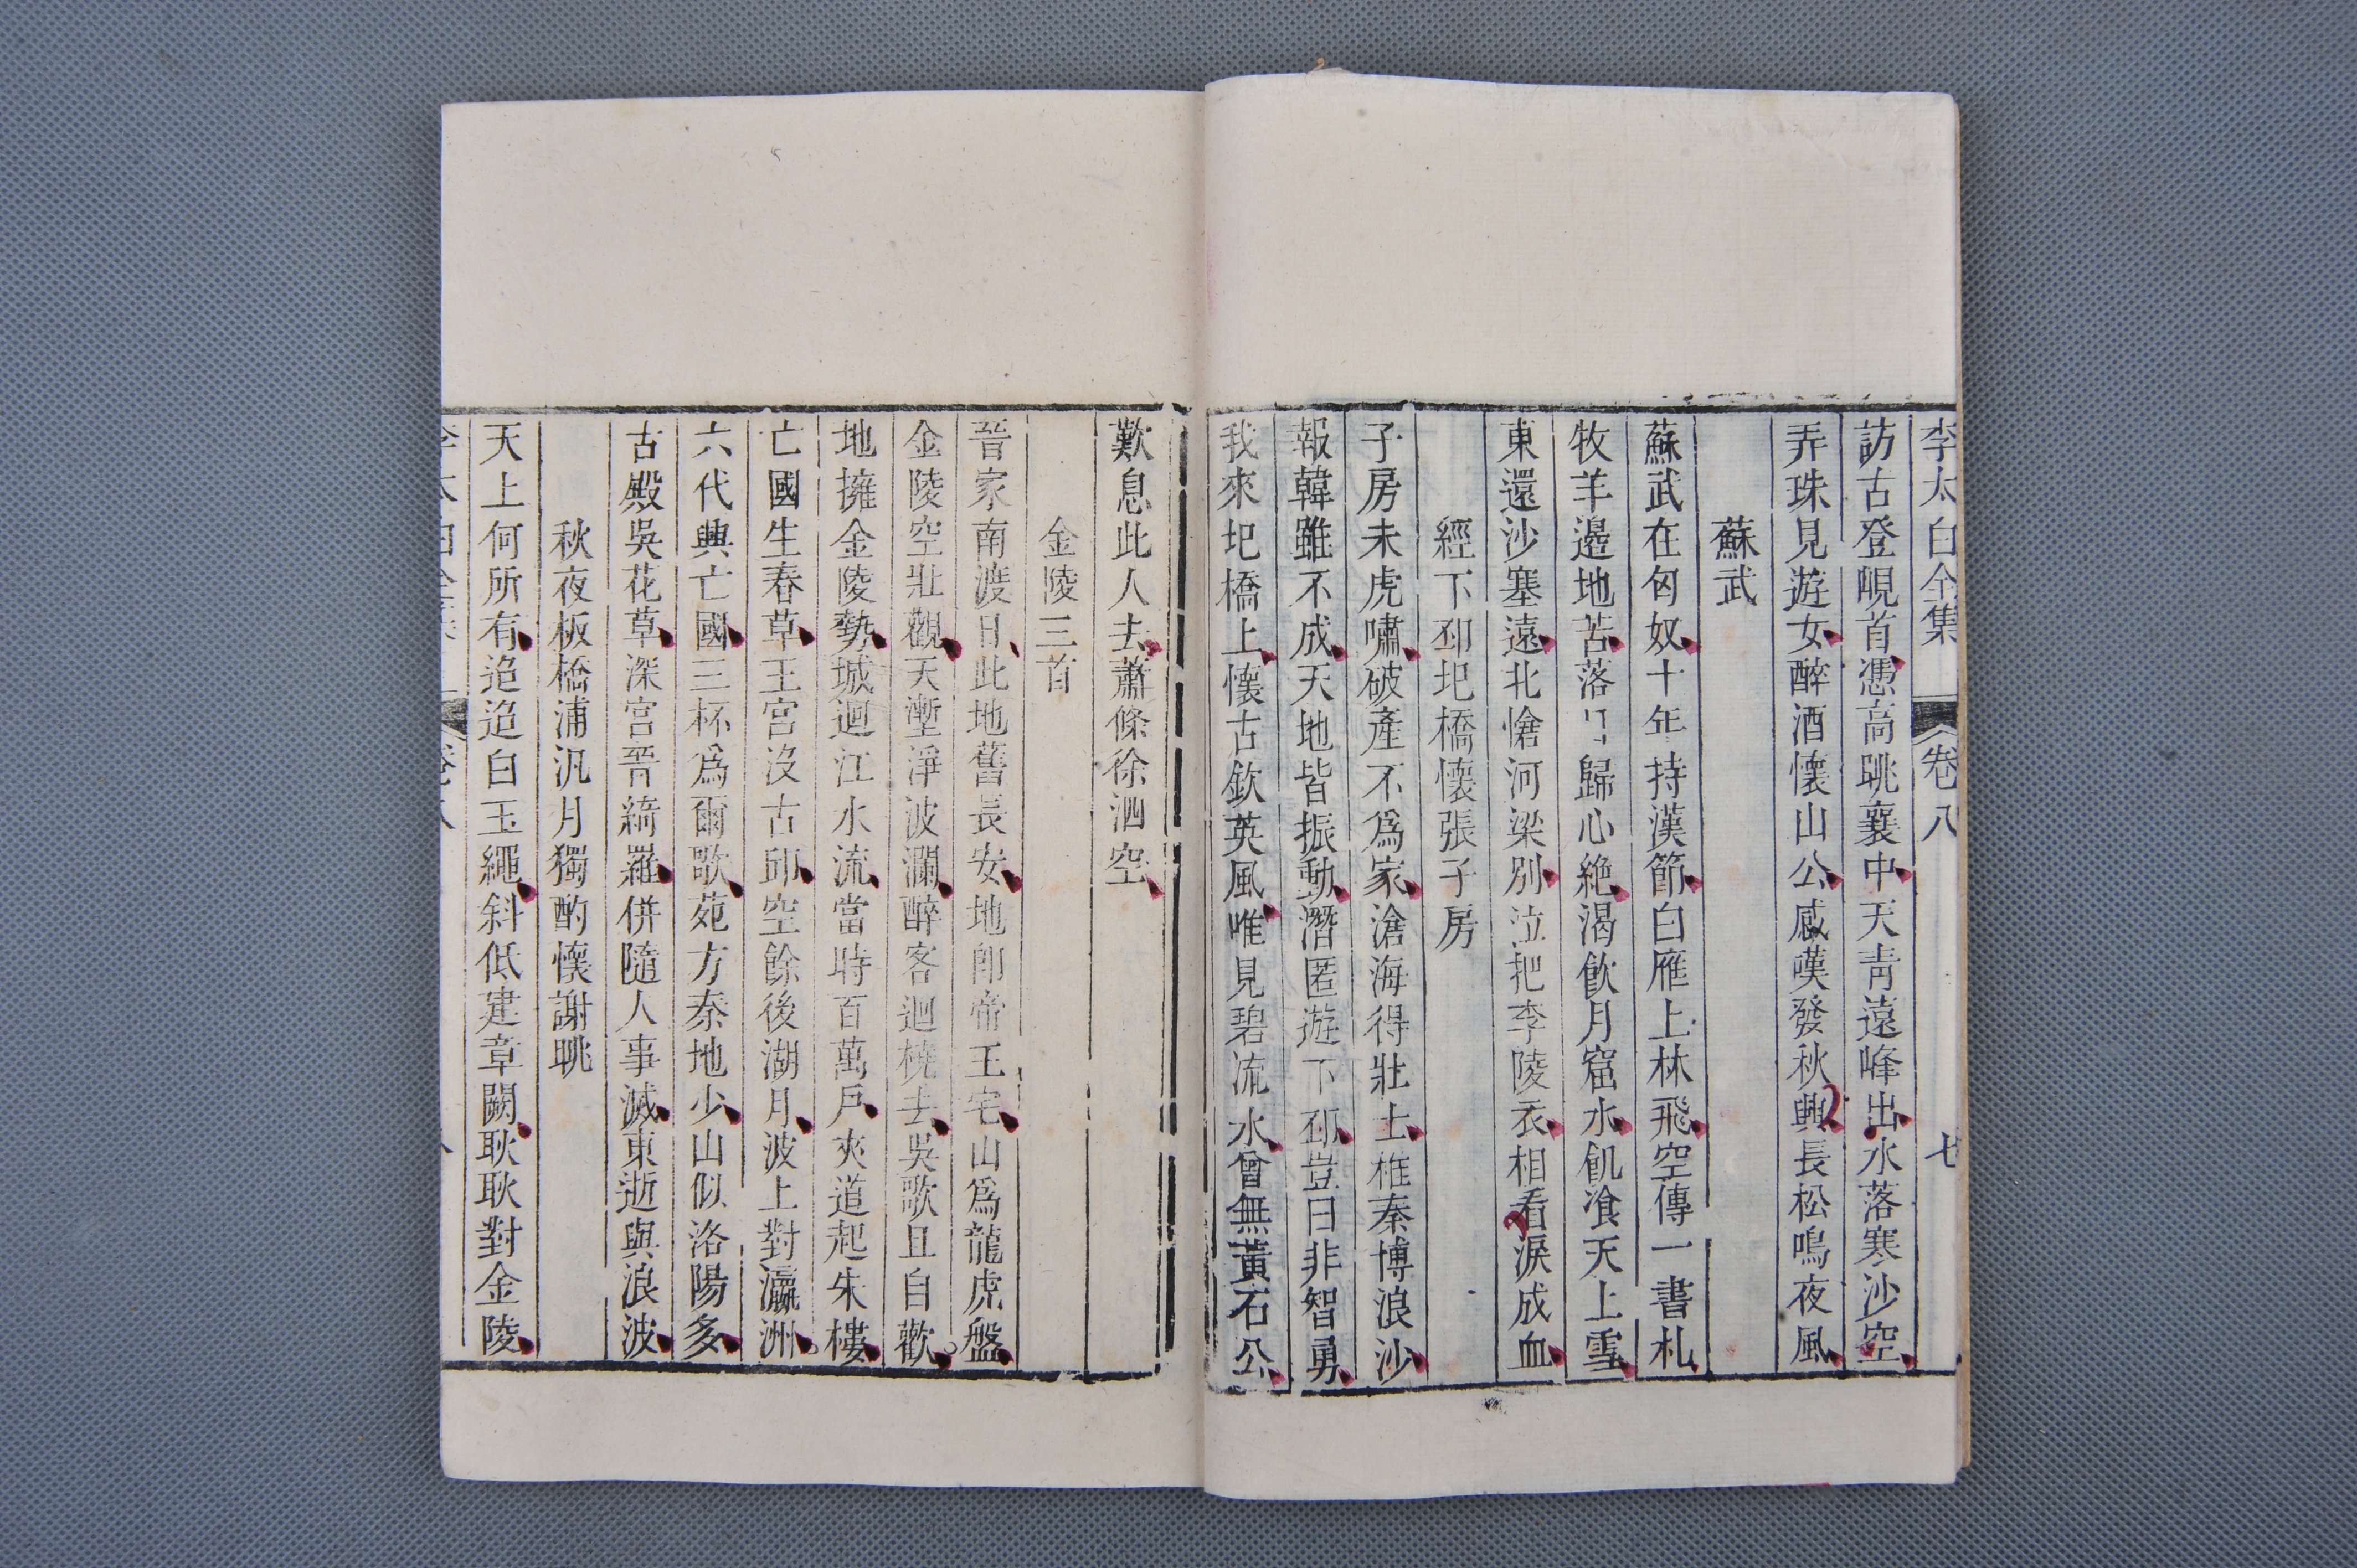 李太白全集 卷八 七
訪古登峴首憑高眺襄中天靑遠峰出水落寒沙空
弄珠見遊女醉酒懷山公感嘆發秋興長松鳴夜風
蘇武
蘇武在匈奴十年持漢節白雁上林飛空傳一書札
牧羊邊地苦落日歸心絶渴飮月窟水飢飡天上雪
東還沙塞遠北愴河梁別泣把李陵衣相看淚成血
經下邳圯橋懷張子房
子房未虎嘯破產不爲家滄海得壯士椎秦博浪沙
報韓雖不成天地皆振動潛匿遊下邳豈曰非智勇
我來圯橋上懷古欽英風唯見碧流水曾無黃石公
歎息此人去蕭條徐泗空
金陵三首
晉家南渡日此地舊長安地卽帝王宅山爲龍虎盤
金陵空壯觀天塹淨波瀾醉客迴橈去吳歌且自歡
地擁金陵勢城迴江水流當時百萬戶夾道起朱樓
亡國生春草王宮沒古邱空餘後湖月波上對瀛洲
六代興亡國三杯爲爾歌苑方秦地少山似洛陽多
古殿吳花草深宮晉綺羅併隨人事滅東逝與滄波
秋夜板橋浦汎月獨酌懷謝眺
天上何所有迢迢白玉繩斜低建章闕耿耿對金陵